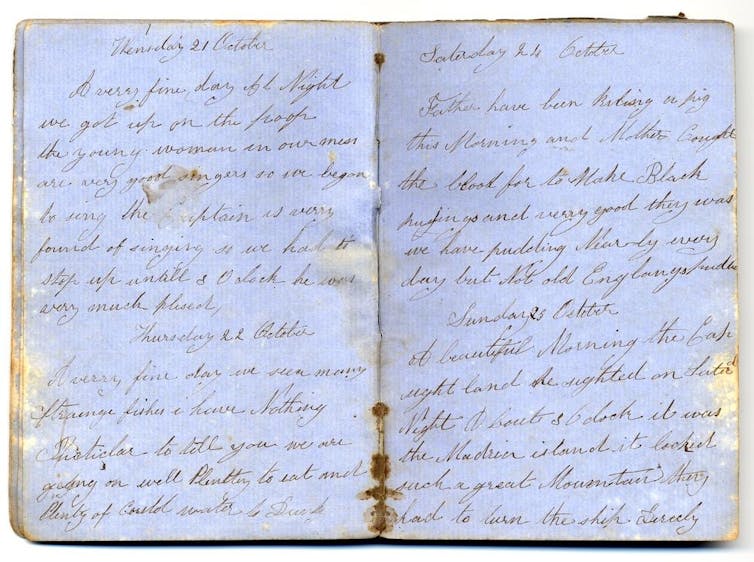 Wensday 21 October
A verry fine day At Night
we got up on the poop
the young woman in our mess
are very good singers so we began
to sing the Captain is verry
found of singing so we had to
stop up untill 8 O clock he was
very much plised,
Thursday 22 October
A verry fine day we seen many
strainge fishes i have Nothing
Particlar to tell you we are
going on well Plentty to eat and
Plenty of Could water to Drink
Saterday 24 October
Father have been Kiling a pig
this Morning and Mother Cought
the blood for to Make Black
pugings and verry good they was
we have pudding Nearly every
day but Not old Englangs
Sunday 25 October
A beautiful Morning the Cap
sight land he sighted on Satd
Night About 8 O clock it was
the Madeir island it locked
such a great Mountain they
had to turn the ship